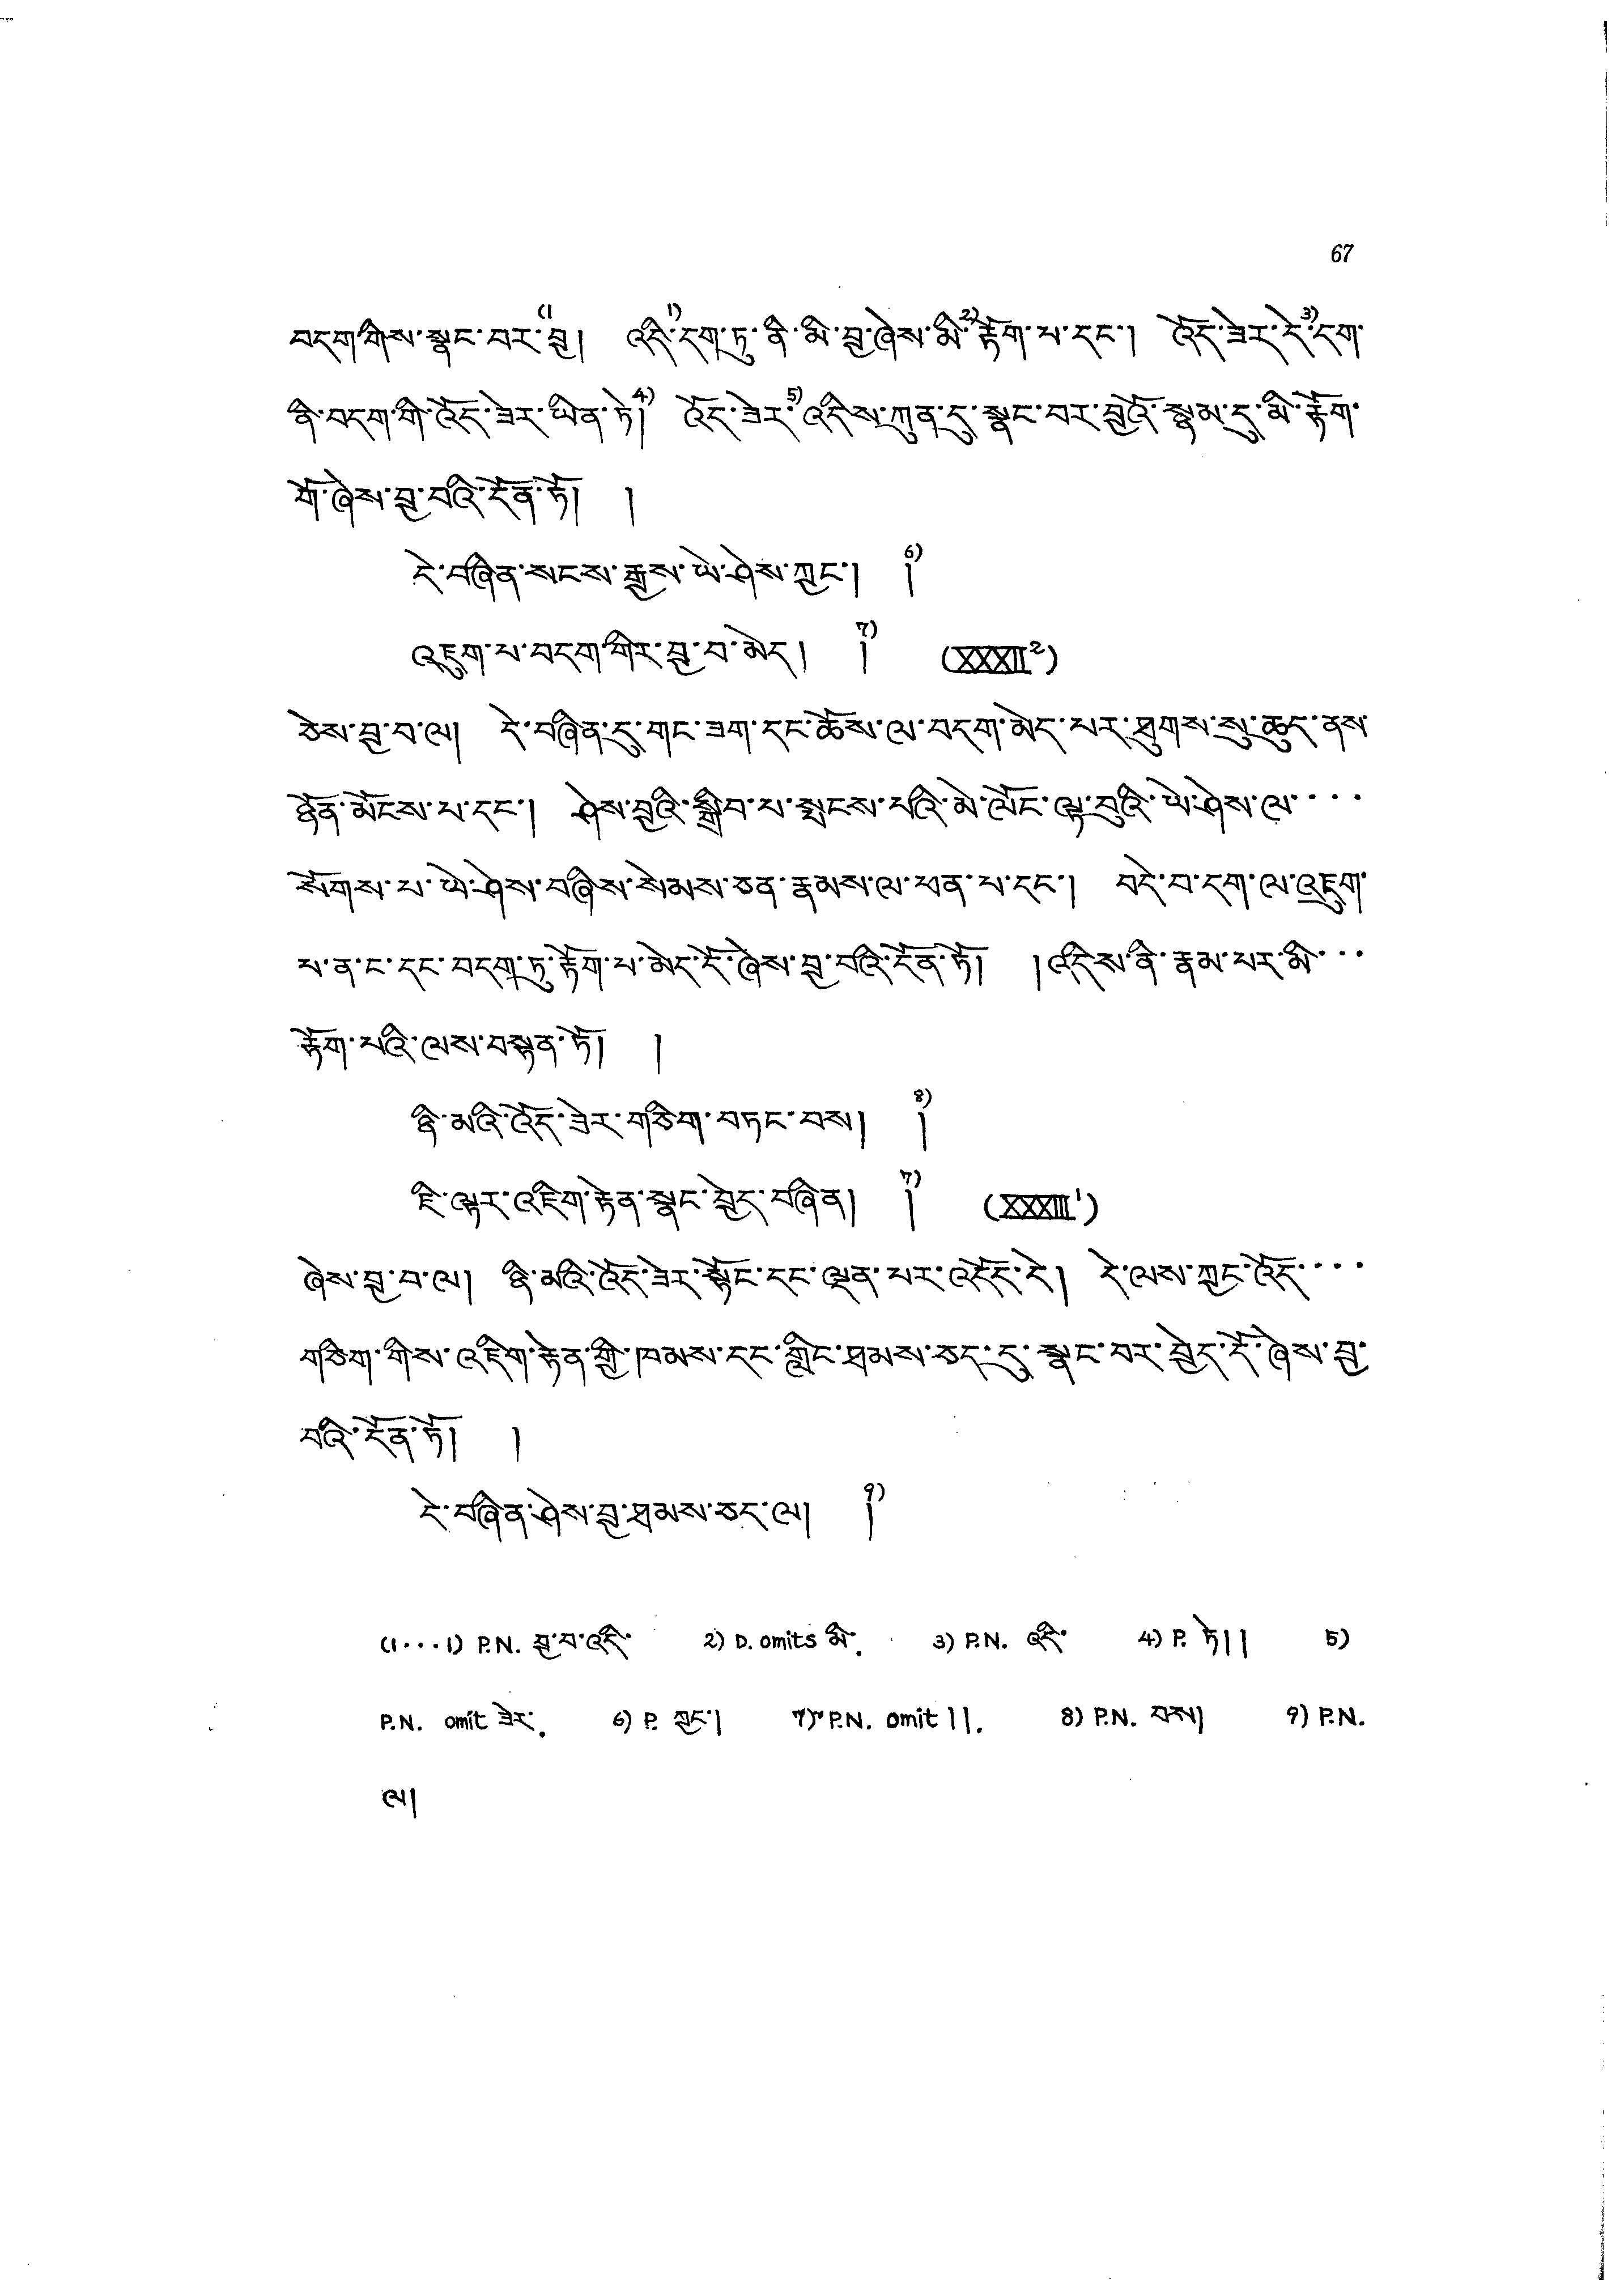 67
བདག་གིས་སྣང་བར་(1་བྱ། འདི་1)དག་ཏུ་ནི་མི་བྱ་ཞེས་མི་2)རྟོག་པ་དང་། འོད་ཟེར་དེ་3)དག་
ནི་བདག་གི་འོད་ཟེར་ཡིན་ཏེ།4) འོད་ཟེར་5)འདིས་ཀུན་དུ་སྣང་བར་བྱའོ་སྙམ་དུ་མི་རྟོག་
གོ་ཞེས་བྱ་བའི་དོན་ཏོ། །
དེ་བཞིན་སངས་རྒྱས་ཡེ་ཤེས་ཀྱང་། །6)
འཇུག་པ་བདག་གིར་བྱ་བ་མེད། །7) (XXXII²)
ཅེས་བྱ་བ་ལ། དེ་བཞིན་དུ་གང་ཟག་དང་ཆོས་ལ་བདག་མེད་པར་ཐུགས་སུ་ཆུད་ནས་
ཉོན་མོངས་པ་དང་། ཤེས་བྱའི་སྒྲིབ་པ་སྤངས་པའི་མེ་ལོང་ལྟ་བུའི་ཡེ་ཤེས་ལ་····
སོགས་པ་ཡེ་ཤེས་བཞིས་སེམས་ཅན་རྣམས་ལ་ཕན་པ་དང་། བདེ་བ་དག་ལ་འཇུག་
པ་ན་ང་དང་བདག་ཏུ་རྟོག་པ་མེད་དོ་ཞེས་བྱ་བའི་དོན་ཏོ། །འདིས་ནི་རྣམ་པར་མི་···
རྟོག་པའི་ལས་བསྟན་ཏོ། །
ཉི་མའི་འོད་ཟེར་གཅིག་བཏང་བས། །8)
ཇི་ལྟར་འཇིག་རྟེན་སྣང་བྱེད་བཞིན། །7) (XXXIII¹)
ཞེས་བྱ་བ་ལ། ཉི་མའི་འོད་ཟེར་སྟོང་དང་ལྡན་པར་འདོད་དེ། དེ་ལས་ཀྱང་འོད་····
གཅིག་གིས་འཇིག་རྟེན་གྱི་ཁམས་དང་གླིང་ཐམས་ཅད་དུ་སྣང་བར་བྱེད་དོ་ཞེས་བྱ་
བའི་དོན་ཏོ། །
དེ་བཞིན་ཤེས་བྱ་ཐམས་ཅད་ལ། །9)
(1···1) P.N. བྱ་བ་འདི་ 2) D. omits མི་. 3) P.N. འདི་ 4) P. ཏེ།། 5)
P.N. omit ཟེར་. 6) P. ཀྱང་། 7) P.N. omit །།. 8) P.N. བས། 9) P.N.
ལ།